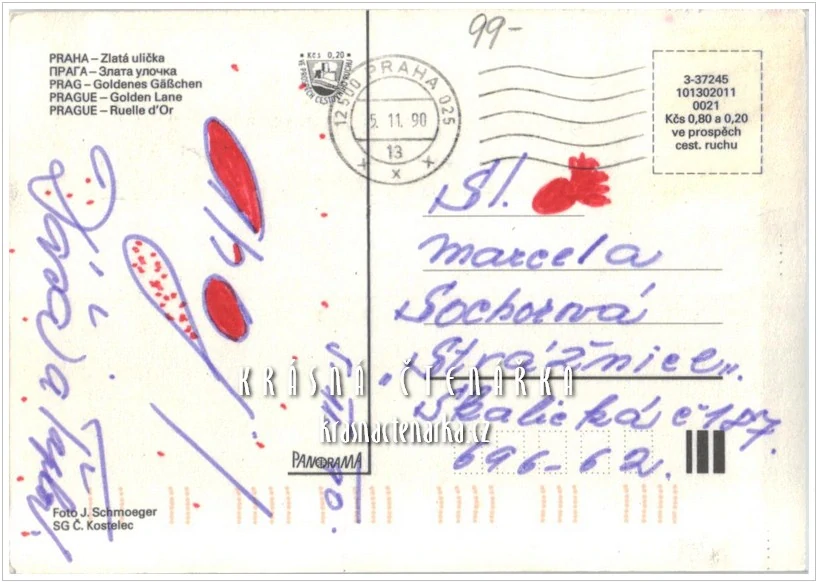 99-
PRAHA – Zlatá ulička
ПРАГА – Злата улочка
PRAG – Goldenes Gäßchen
PRAGUE – Golden Lane
PRAGUE – Ruelle d'Or
Kčs 0,20
12500 PRAHA 025
5.11.90
13
3-37245
101302011
0021
Kčs 0,80 a 0,20
ve prospěch
cest. ruchu
Sl.
Marcela
Sochorová
„Strážnice".
Skalická č 187.
696-62.
KRÁSNÁ ČTENÁŘKA
krasnactenarka.cz
PANORAMA
Foto J. Schmoeger
SG Č. Kostelec